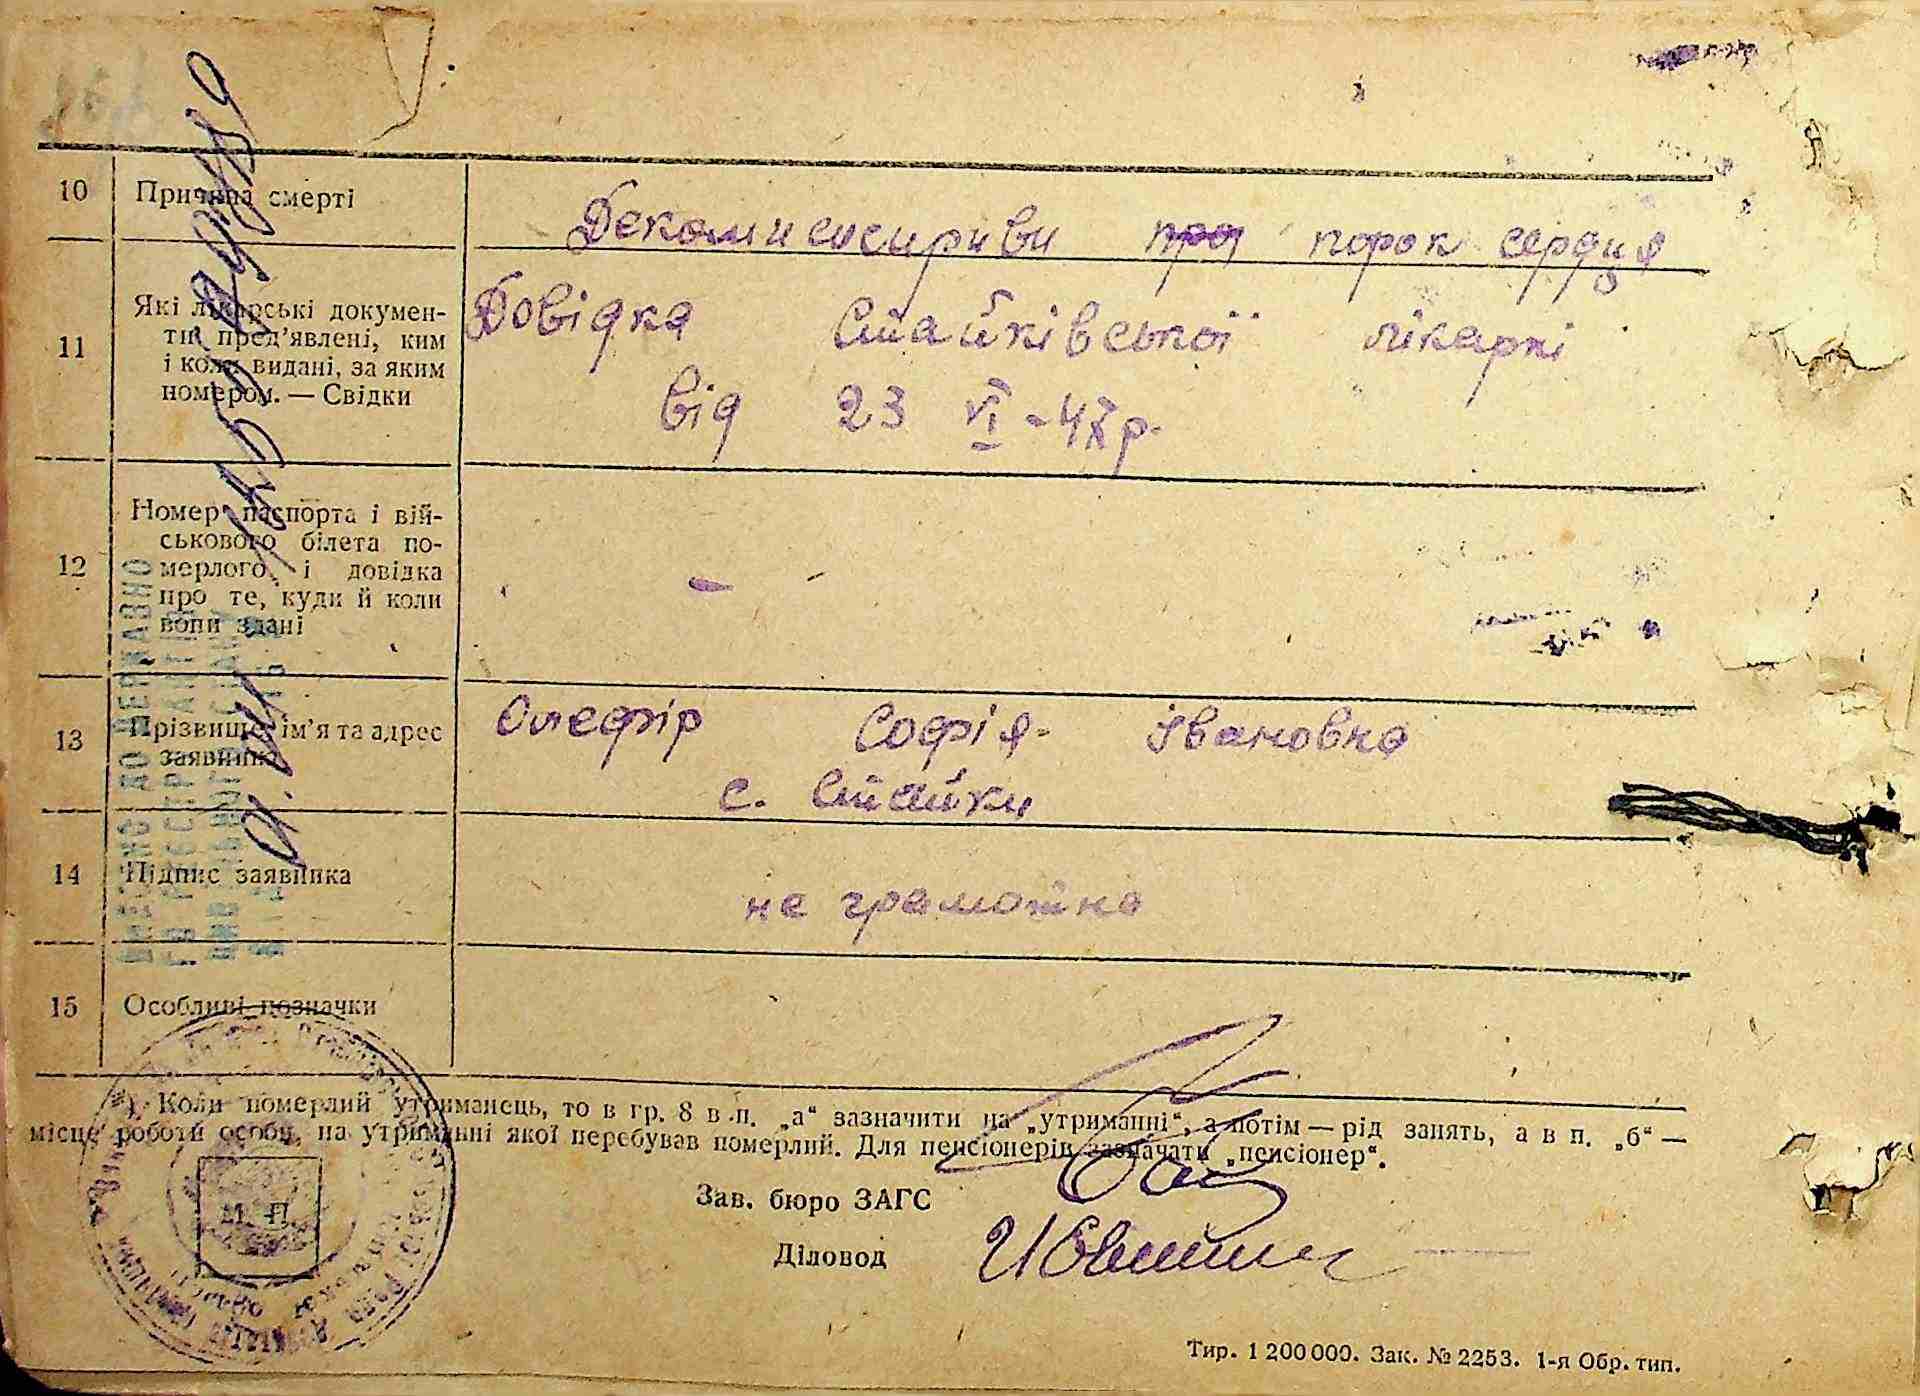 10 Причина смерті
Декомпенсириви порок сердця
11 Які лікарські докумен-
ти пред’явлені, ким
і коли видані, за яким
номером. — Свідки
Довідка Стайківської лікарні
від 23 VI - 47 р.
12 Номер паспорта і вій-
ськового білета по-
мерлого і довідка
про те, куди й коли
вони здані
—
13 Прізвище ім’я та адрес
заявника
Олефір Софія Івановна
с. Стайки
14 Підпис заявника
не грамотна
15 Особливі позначки
) Коли померлий утриманець, то в гр. 8 в п. „а“ зазначити на „утриманні“, а потім — рід занять, а в п. „б“ —
місце роботи особи, на утриманні якої перебував померлий. Для пенсіонерів зазначати „пенсіонер“.
М. П.
Зав. бюро ЗАГС
Діловод
Тир. 1 200 000. Зак. № 2253. 1-я Обр. тип.